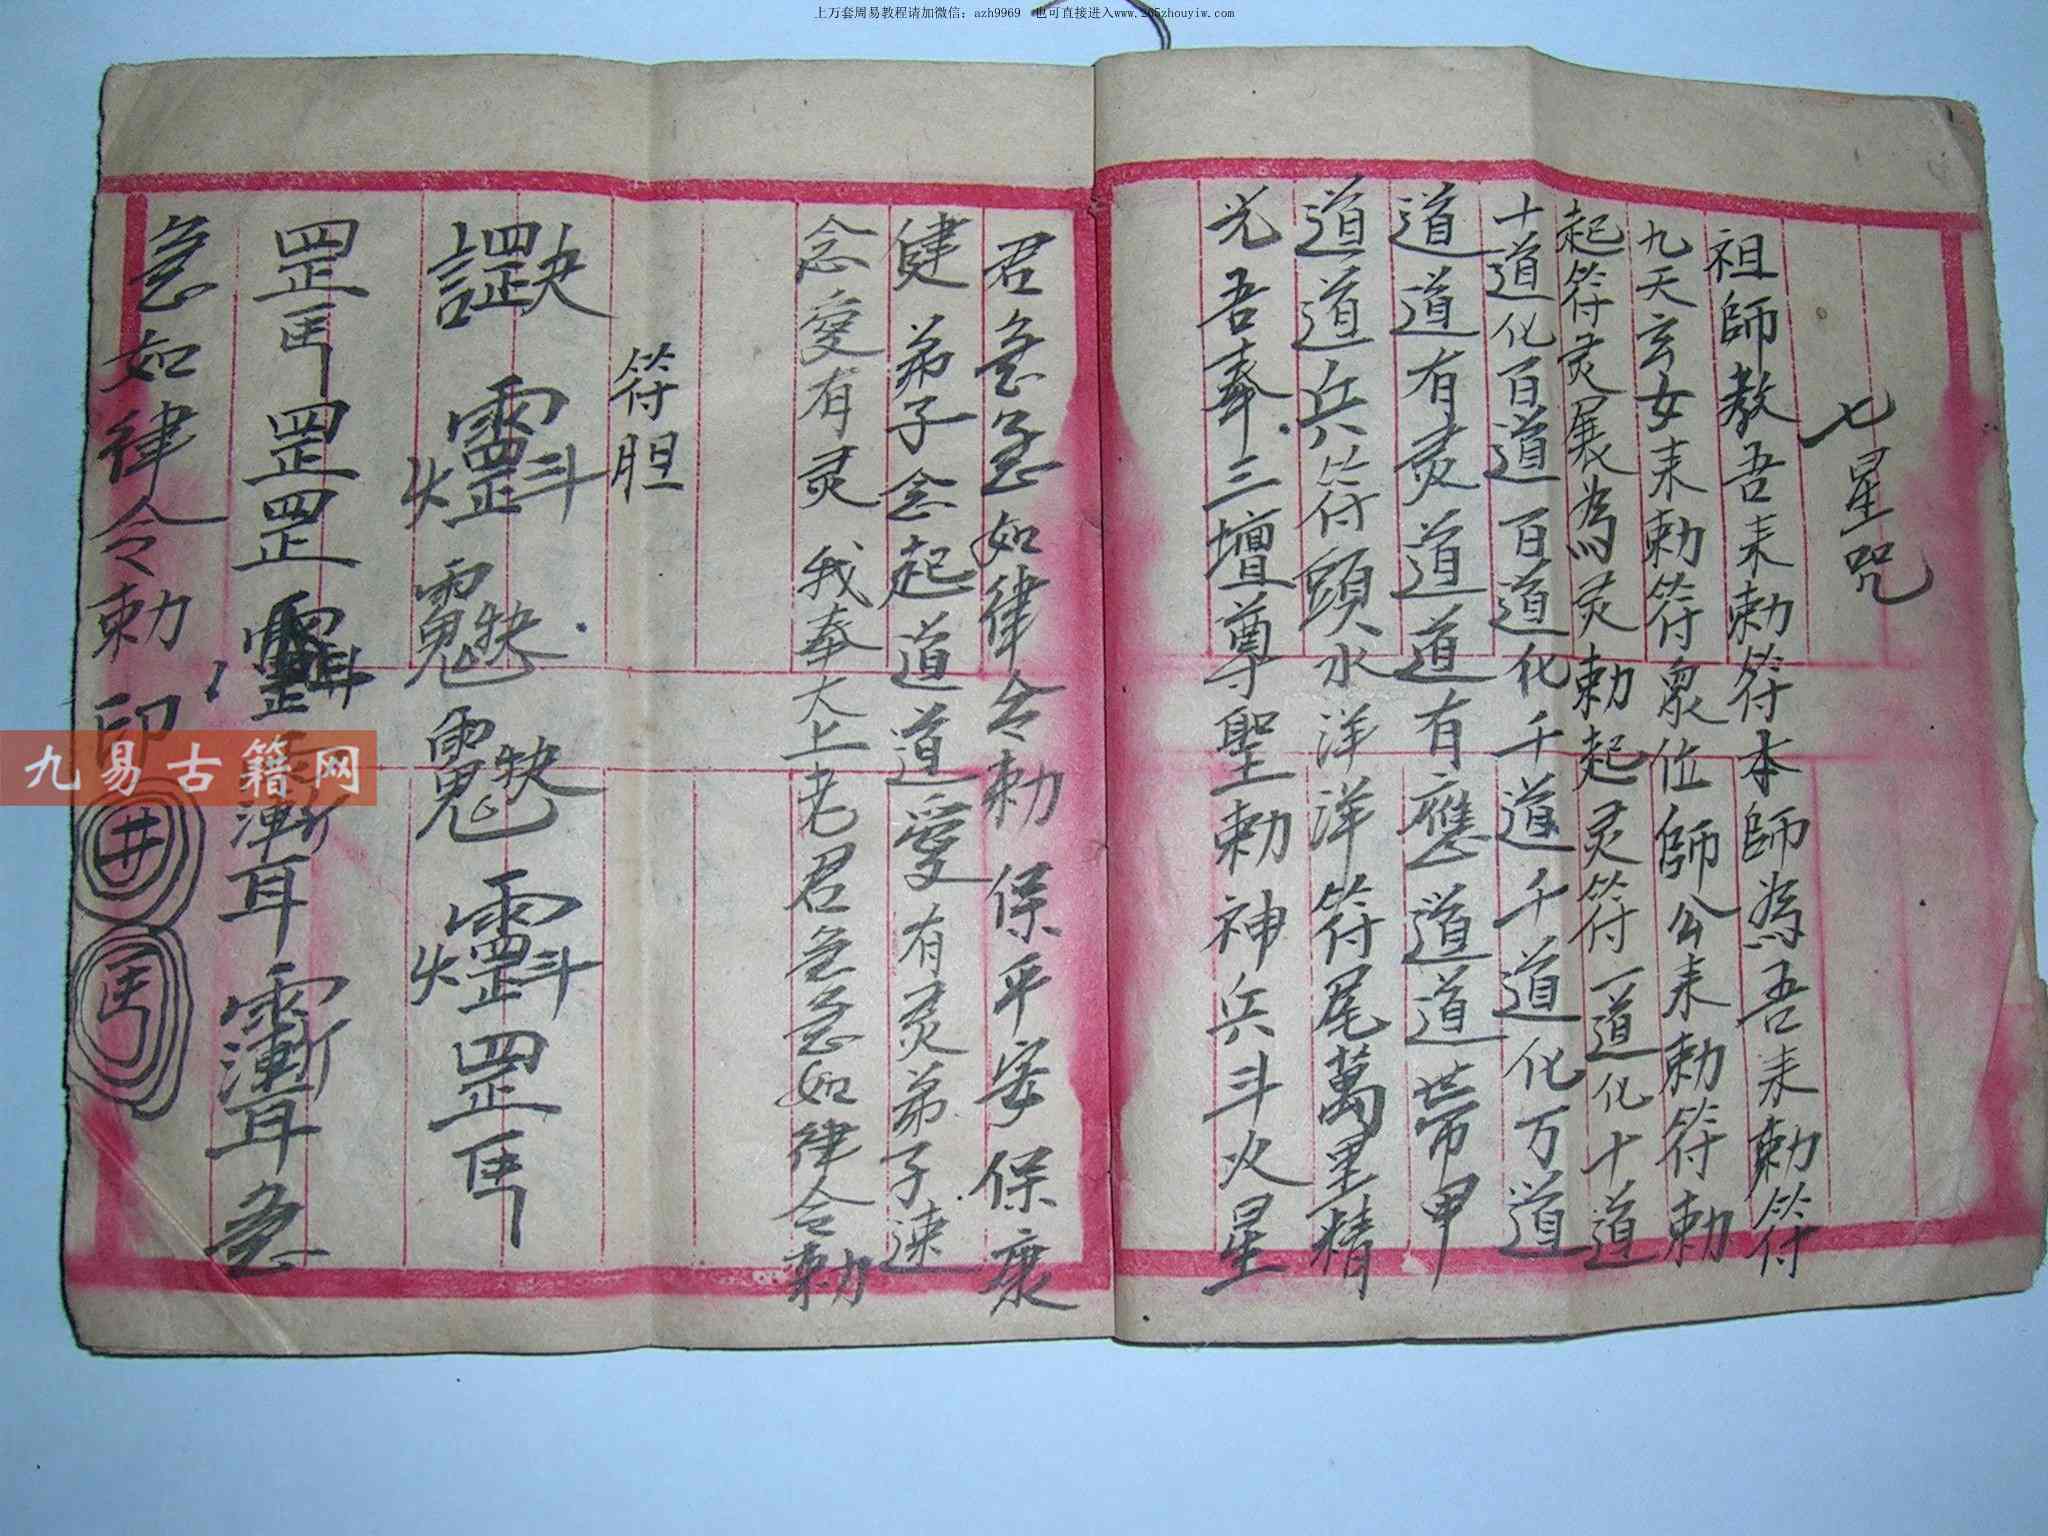 上万套周易教程请加微信：azh9969 也可直接进入www.265zhouyiw.com
七星咒
祖師教吾来勅符本師為吾来勅符
九天玄女来勅符眾位師公来勅符勅
起符灵展為灵勅起灵符一道化十道
十道化百道百道化千道千道化万道
道道有灵道道有應道道世帶甲
道道兵符頭水洋洋符尾萬里精
光吾奉三壇尊聖勅神兵斗次星
君急急如律令勅保平安保康
健弟子念起道道愛有灵弟子速
念愛有灵我奉太上老君急急如律令勅
符胆
罡
罡罡罡急
急如律令勅印井
九易古籍网